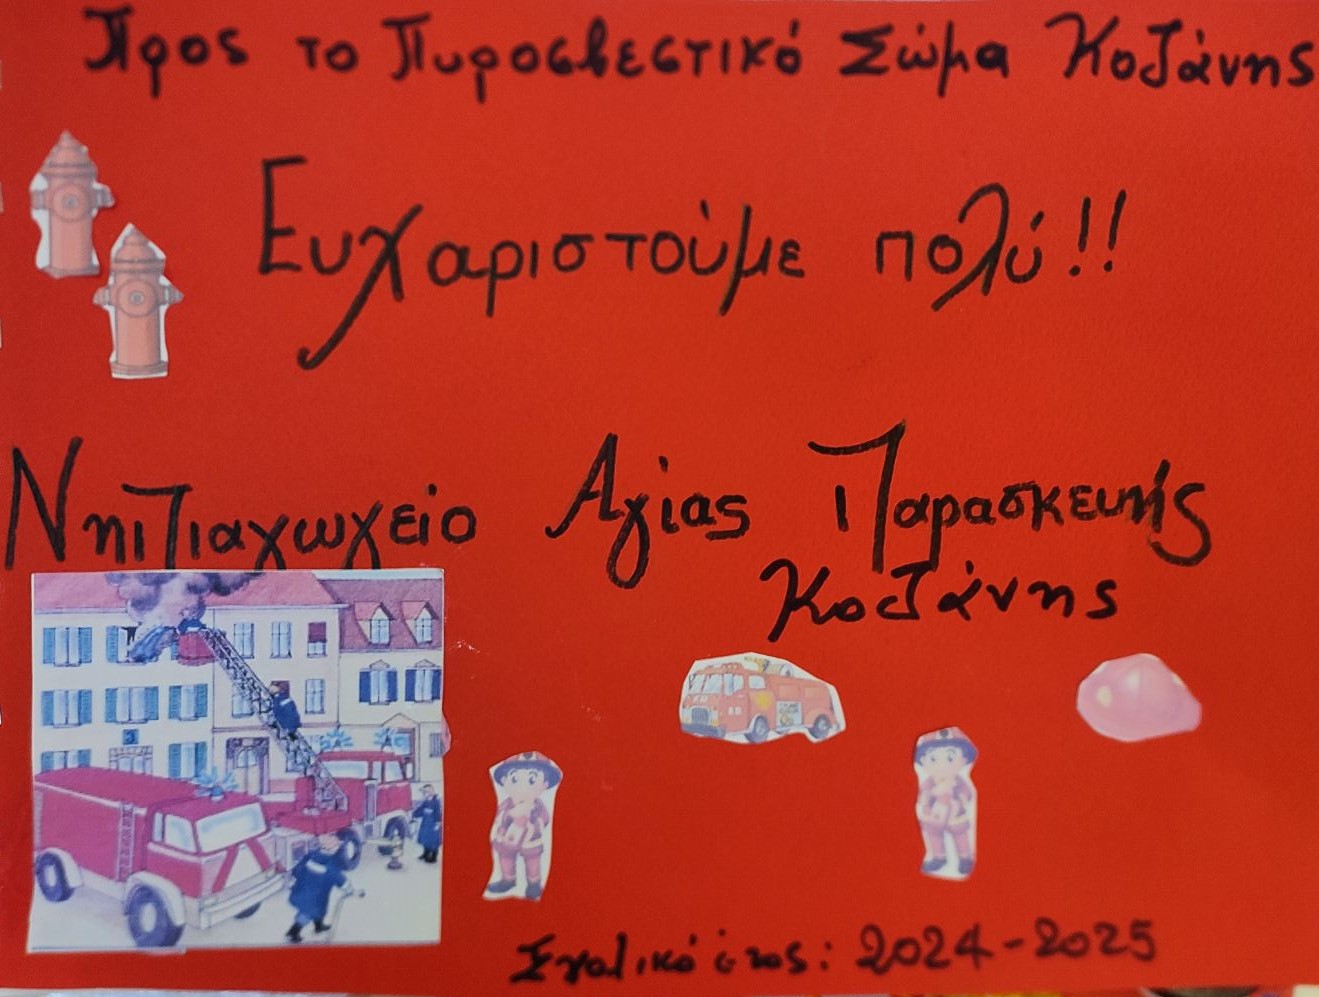 Προς το Πυροσβεστικό Σώμα Κοζάνης
Ευχαριστούμε πολύ!!
Νηπιαγωγείο Αγίας Παρασκευής
Κοζάνης
Σχολικό έτος: 2024-2025